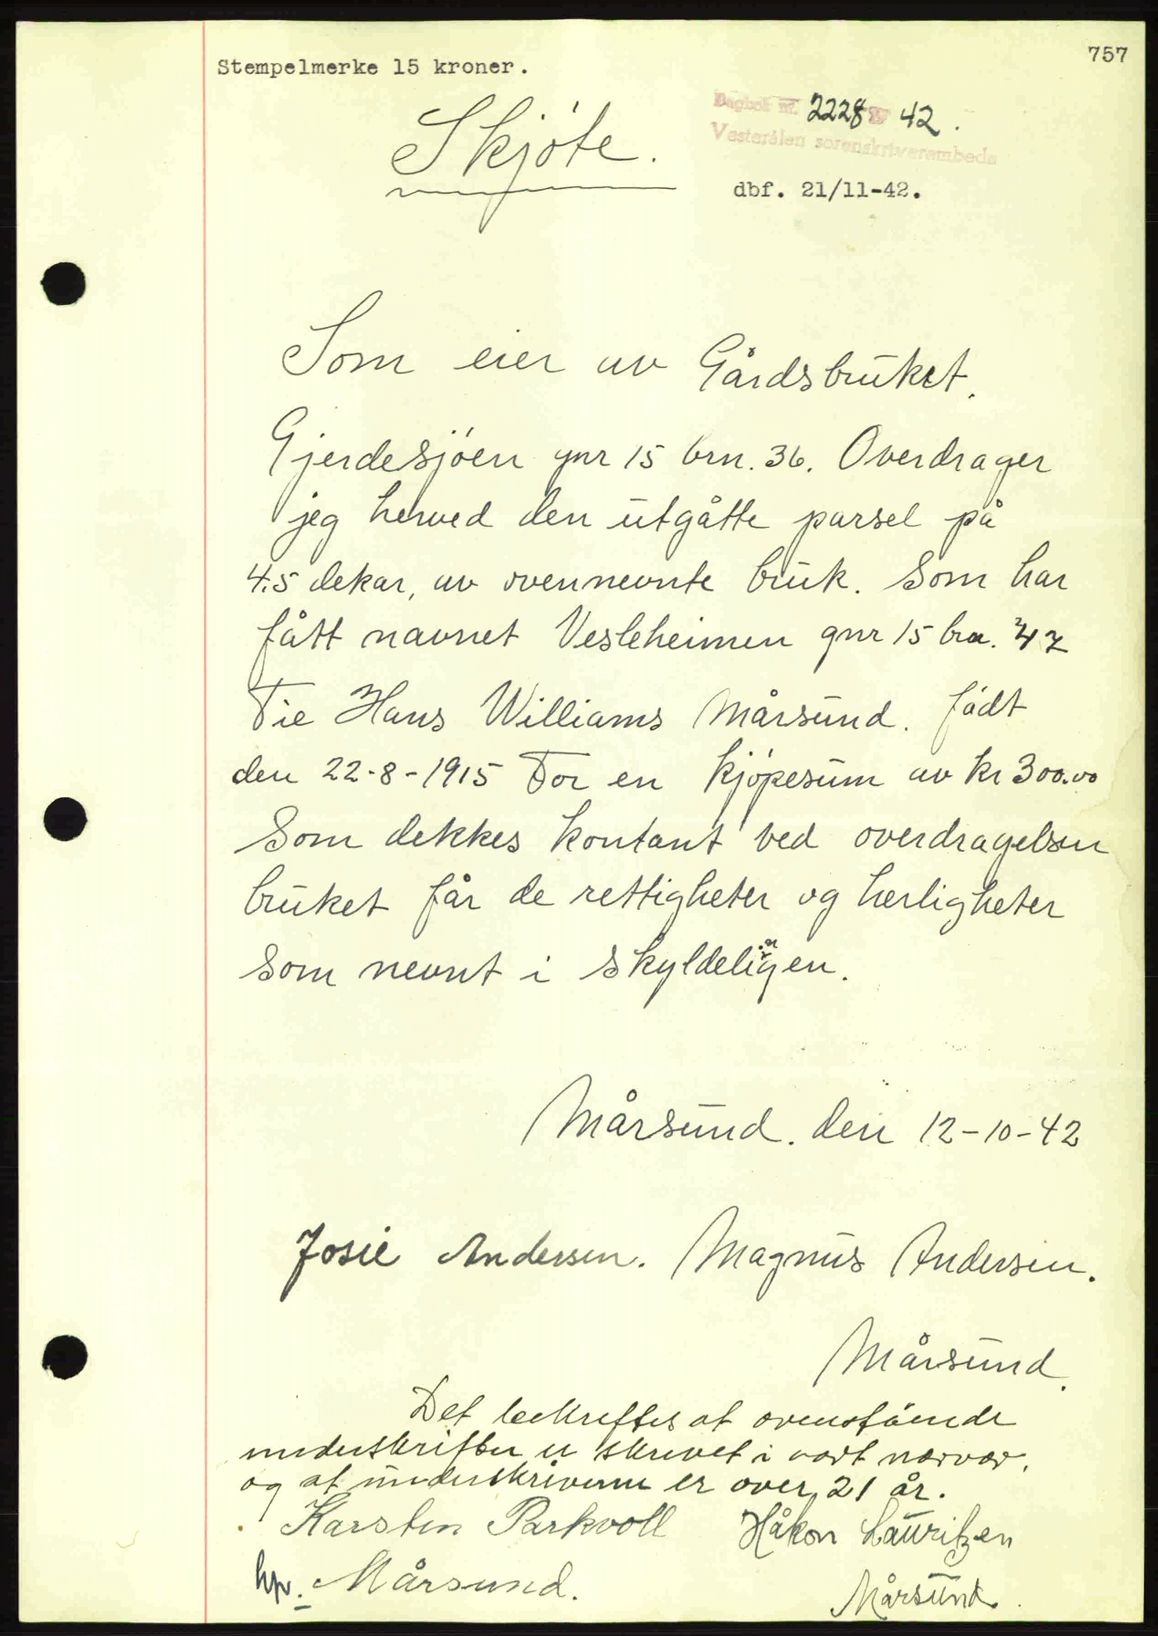 757
Stempelmerke 15 kroner.
Dagbok nr. 2228 42.
Vesterålen sorenskriverembede
Skjöte.
dbf. 21/11-42.
Som eier av Gårdsbruket.
Gjerdesjöen gnr 15 brn. 36. Overdrager
jeg herved den utgåtte parsel på
4.5 dekar, av ovennevnte bruk. Som har
fått navnet Vesleheimen gnr 15 brn. 47
Tie Hans Williams Mårsund. födt
den 22-8-1915 For en kjöpesum av kr 300.00
Som dekkes kontant ved overdragelsen
bruket får de rettigheter og herligheter
som nevnt i skyldeligen.
Mårsund. den 12-10-42
Josie Andersen. Magnus Andersen.
Mårsund.
Det bekreftes at ovenstående
underskrifter er skrevet i vort nærvær,
og at underskriverne er over 21 år.
Karsten Parkvoll Håkon Lauritzen
hp. Mårsund.
Mårsund.